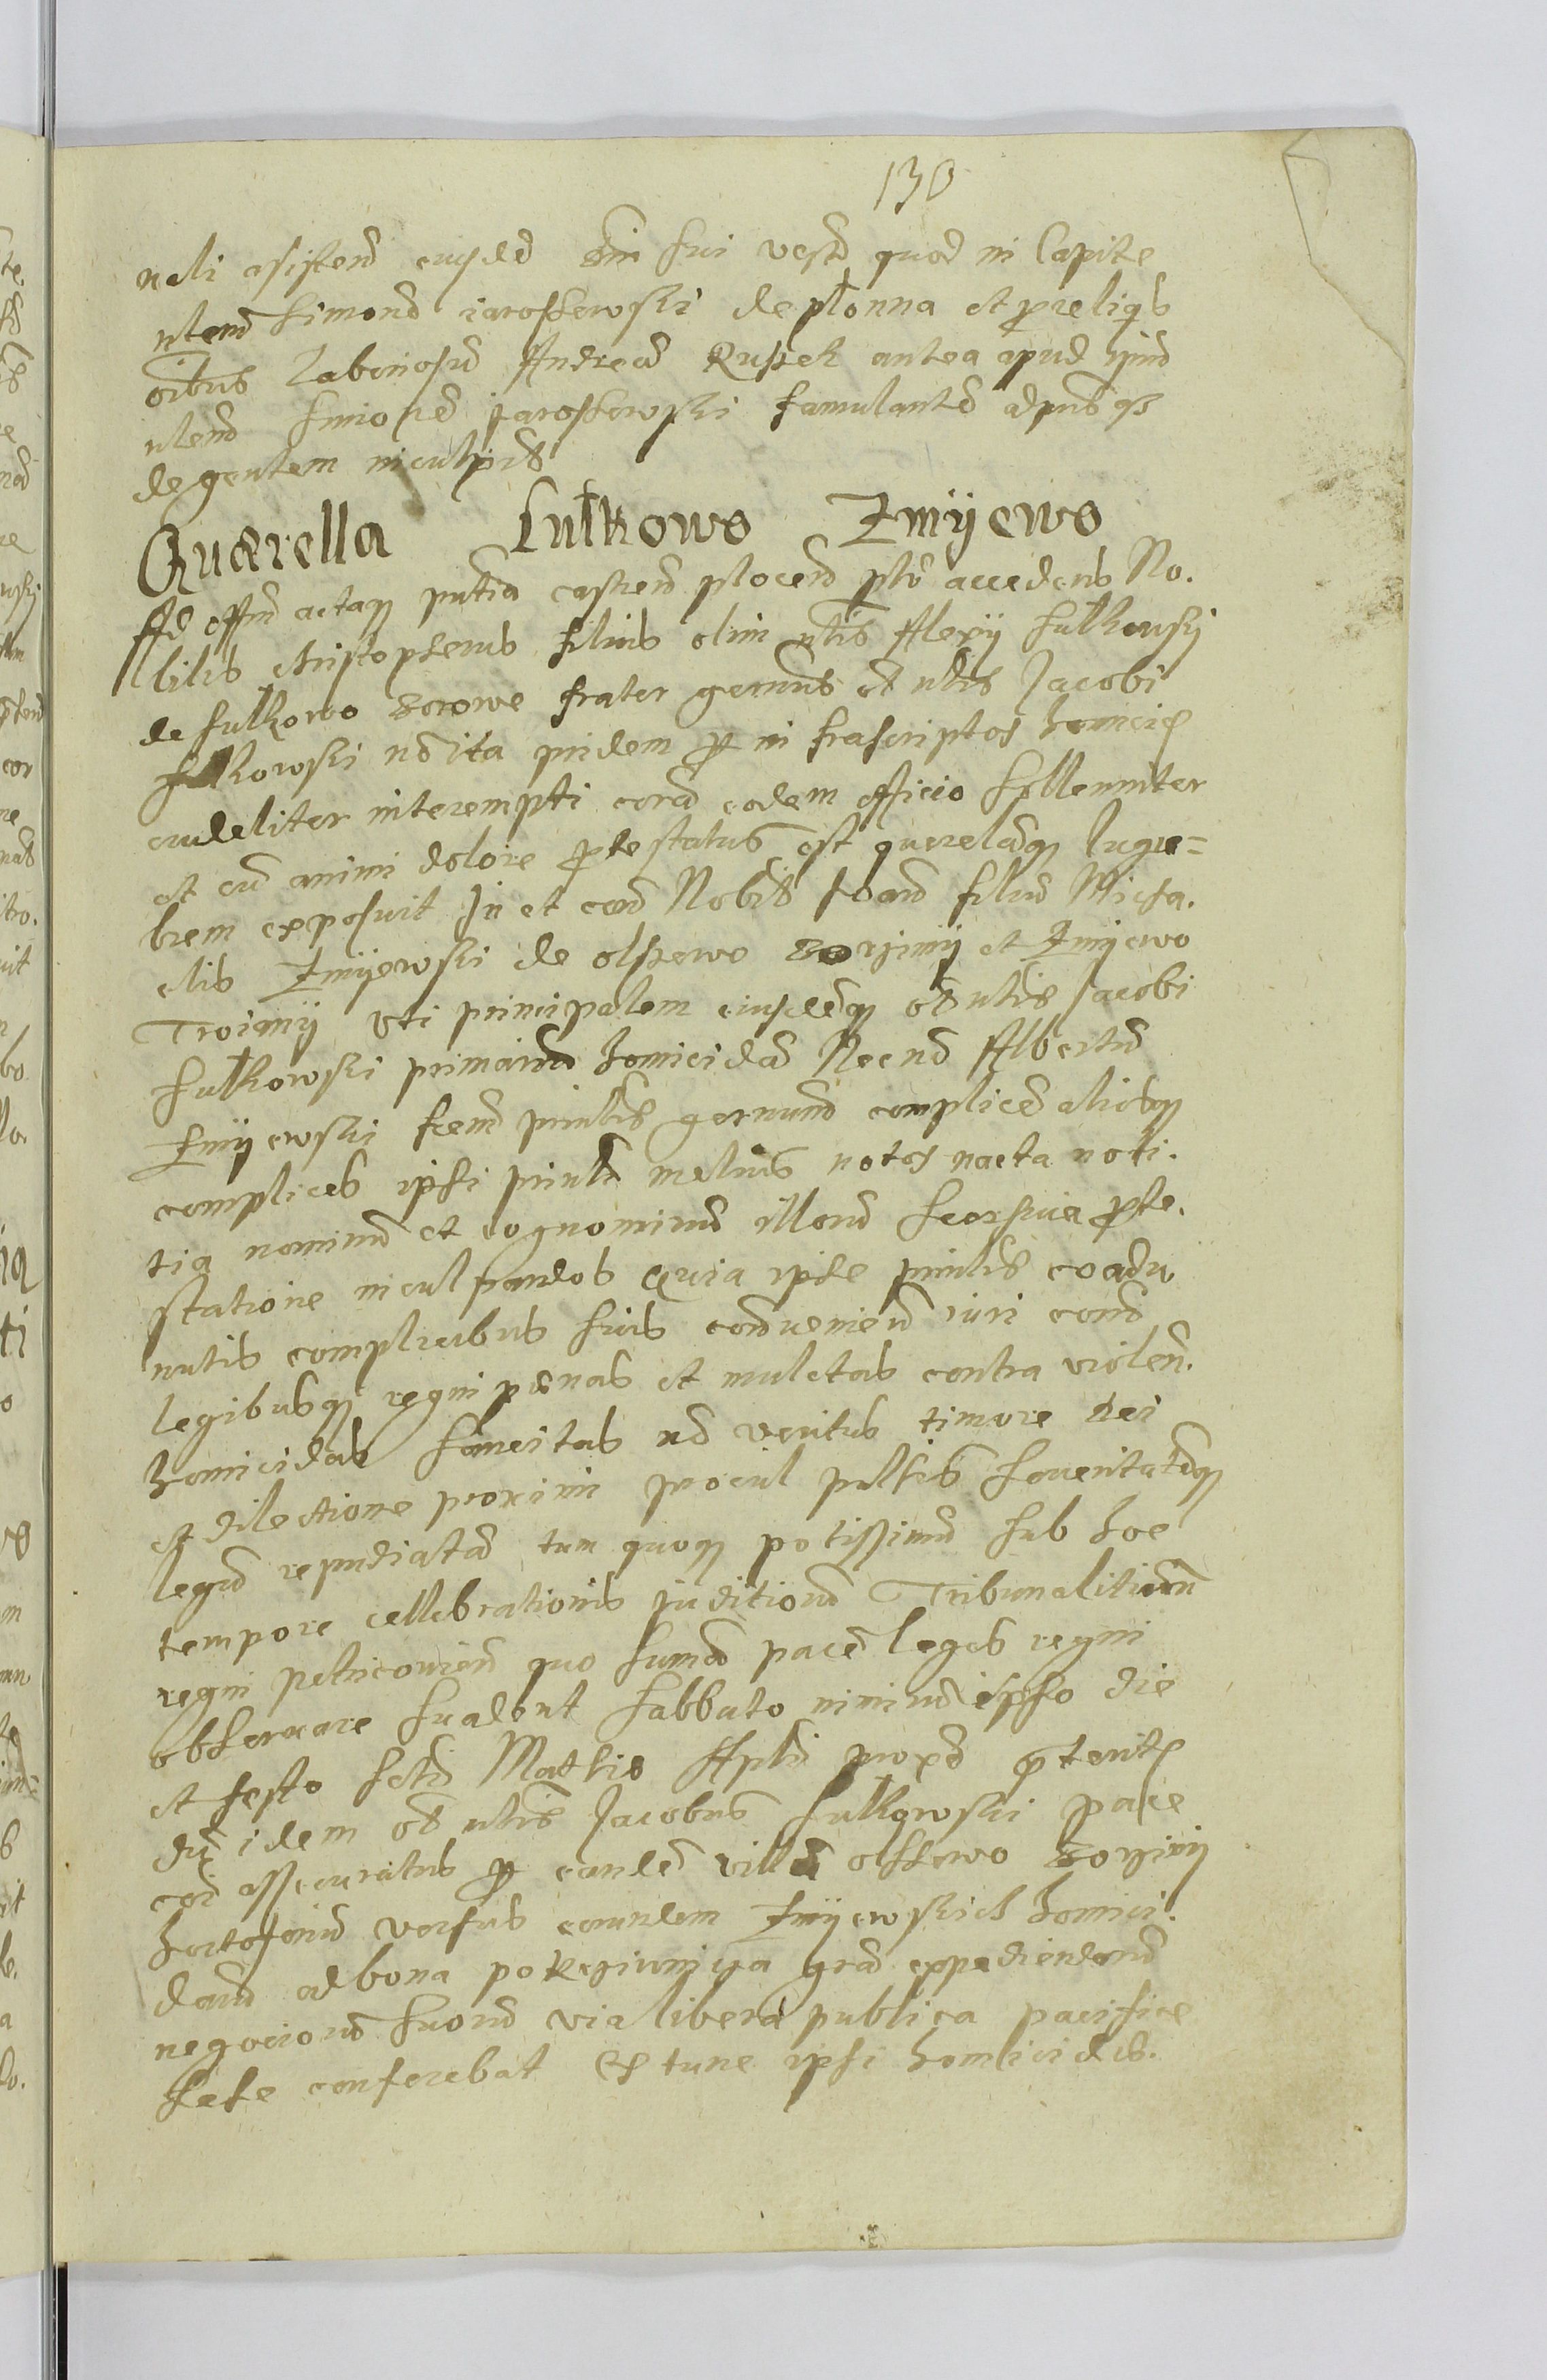 130
neli asistend eiusdē suis sui vesd quod in Capite
ntem Simond iaroszewski de płonna et pro reliqs
oibus Laboriosu Andream Ruszek antea apud
ntem Simoned jaroszewski famulante
degentem inculpdt
Quærella Sulkowo Zmÿewo
Ad offm actaqz pntia castren plocen psolr accedens No.
bilis christopherus filius olim nlis Alexij sulkowsky
de sulkowo borowe frater germns et nlis Jacobi
sulkowski nō ita pridem per in frascriptos homicid
crudeliter interempti corā eodem officio sollemniter
et cū animi dolore protestatus est querelāqz lugu=
brem exposuit In et con Nobit Joand filiū Micha.
elis Zmÿewski de olszewo borzinij et Zmÿewo
Troiany vti principalem eiusdēqz ol nlis Jacobi
sulkowski primariū homicidā Necnō Albertū
Zmÿewski frem pnlis germanū complicē aliosqz
complices ipsi pnli melius notos nacta noti.
tia nominū et cognominū illorū seorsiva prote.
statione inculpandos Quia ipse pnlis coadu.
natis complicibus suis convenien iuri cond
legibusqz regni pœnas et mulctas contra violen.
homicidas sancitas nō veritus timore dei
et dilectione proximi procul pulsis severitatēqz
legū repudiatā tum quoqz potissimū sub hoc
tempore cellebrationis juditiorū Tribunalitiorū
regni petricovien quo summā pacē leges regni
observare suadent sabbato nimirū ipso die
et festo scti Mathie Apli proxe preterito
dū idem ol nlis Jacobus sulkowski pace
coi assecuratus per eandē villā olszewo borziny
hortosoriū versus eorundem Zmyewskich homici.
darū ad bona pokrziwnica gra expediendorū
negociorū suorū via libera publica pacifice
sese conferebat Ex tunc ipsi homicidæ.